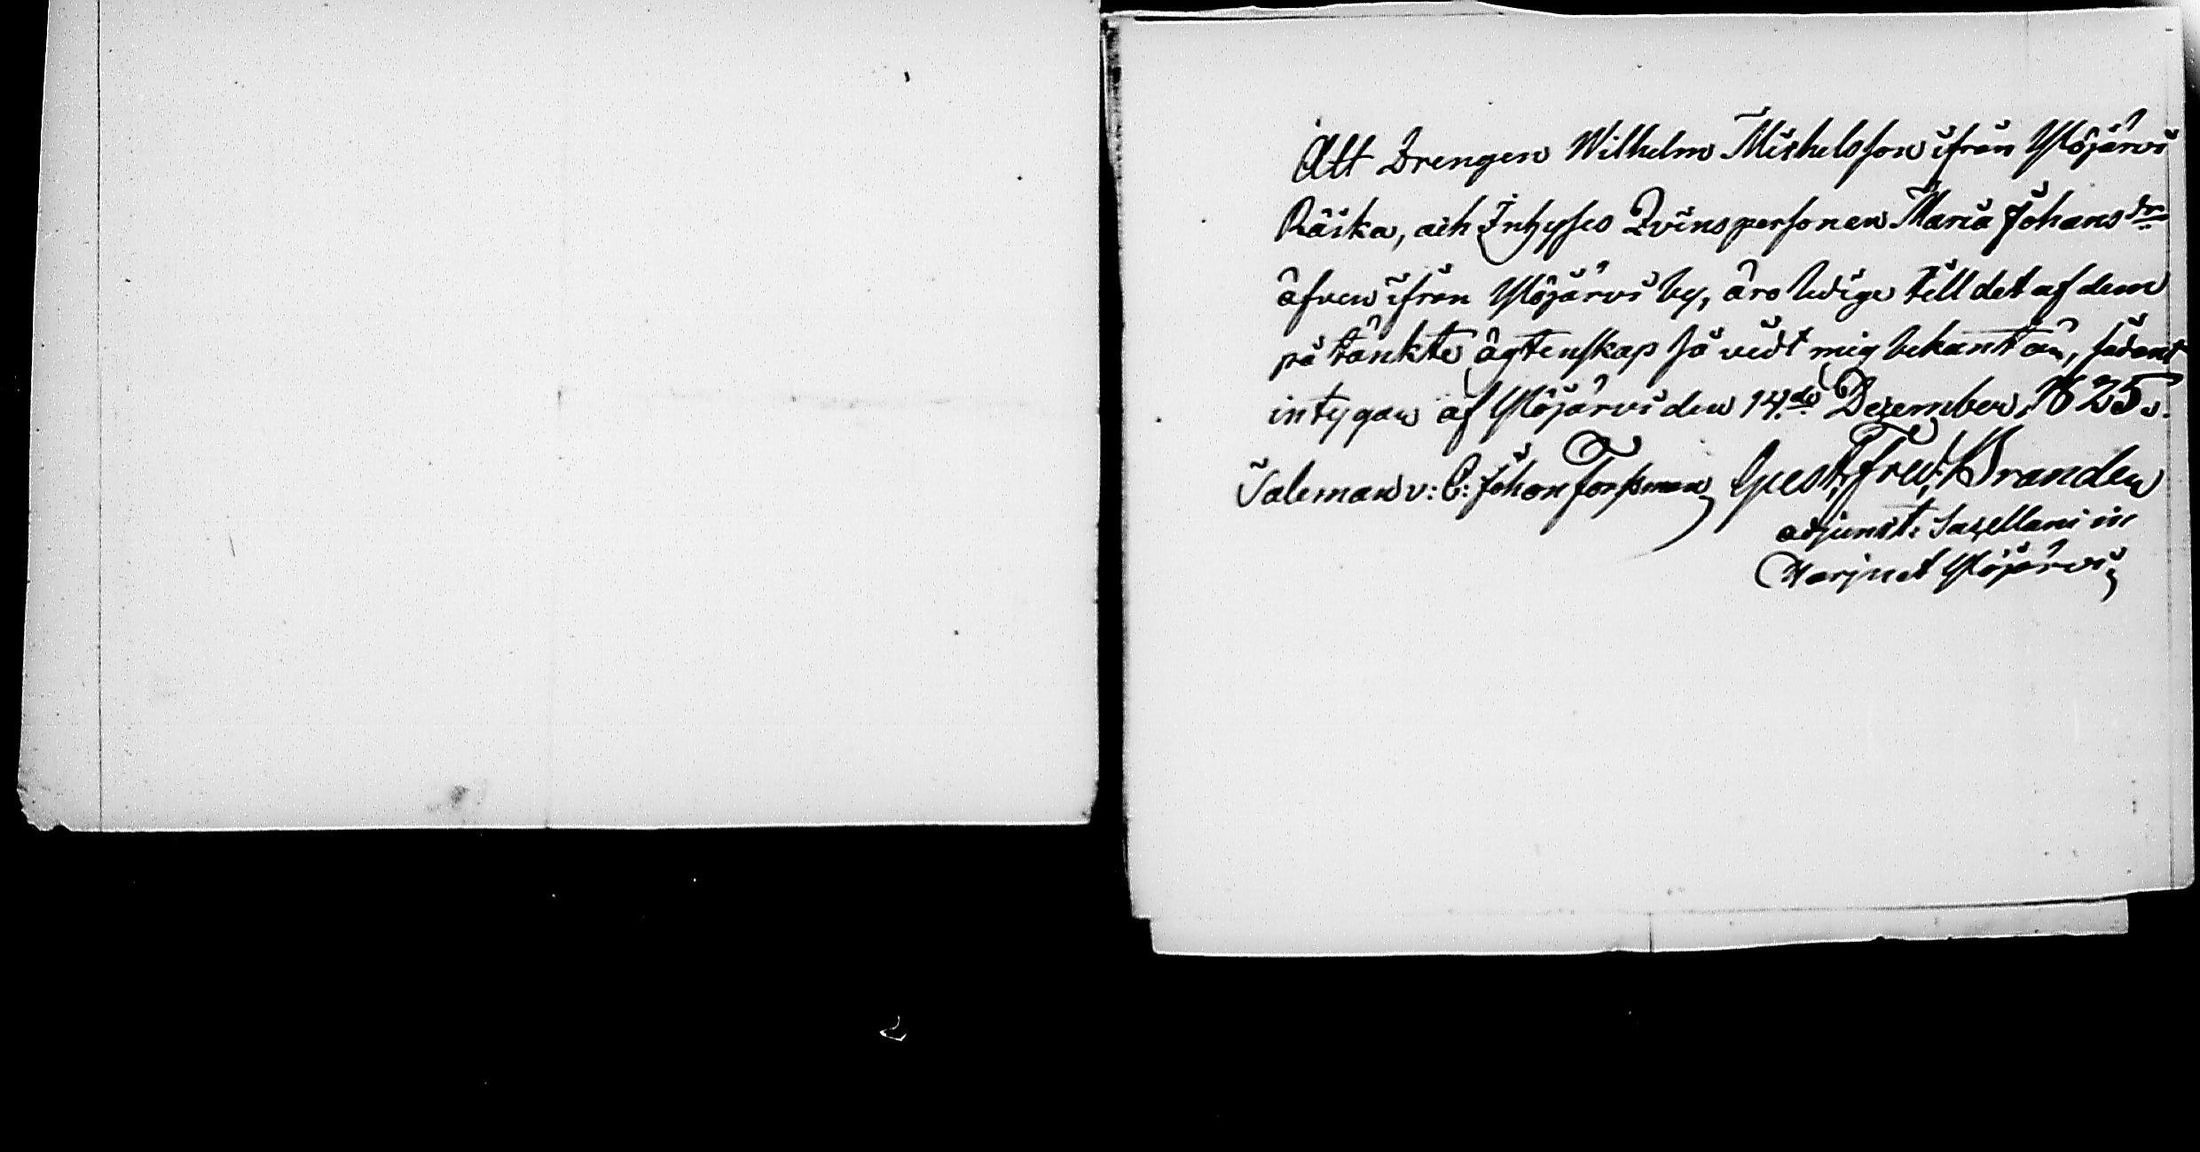 Att Drengen Wilhelm Michelsson ifrån Ylöjärvi
Räikä, och Inhyses Qvinspersonen Maria Johansdr
äfven ifrån Ylöjärvi by, äro ledige till det af dem
på tänkte ägtenskap så vidt mig bekant är, sådant
intygan af Ylöjärvi den 14de Dezember 1825.
Taleman v: C: Johan Forssman Gust: Fred: Granden
adjunct: Sacellani in
Harju et Ylöjärvi